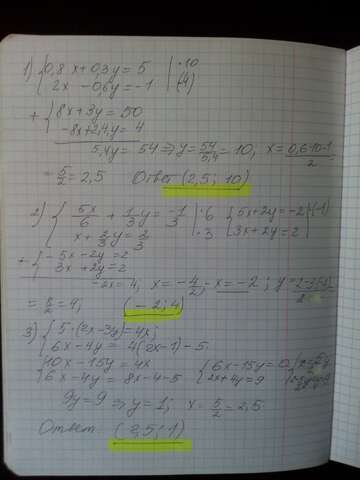 1) { 0,8x + 0,3y = 5 | ·10
2x - 0,6y = -1 | (-4)
+ { 8x + 3y = 50
-8x + 2,4y = 4
5,4y = 54 ⇒ y = 54/5,4 = 10, x = 0,6·10-1/2
= 5/2 = 2,5 Ответ (2,5; 10)
2) { 5x/6 + 1/3y = -1/3 | ·6 { 5x + 2y = -2 | (-1)
x + 2/3y = 2/3 | ·3 3x + 2y = 2
+ { -5x - 2y = 2
3x + 2y = 2
-2x = 4, x = -4/2, x = -2; y =
= 4, (-2; 4)
3) { 5·(2x-3y) = 4x;
6x - 4y = 4(2x-1) - 5
10x - 15y = 4x { 6x - 15y = 0
6x - 4y = 8x - 4 - 5 2x + 4y = 9
9y = 9 ⇒ y = 1; x = 5/2 = 2,5.
Ответ (2,5; 1)